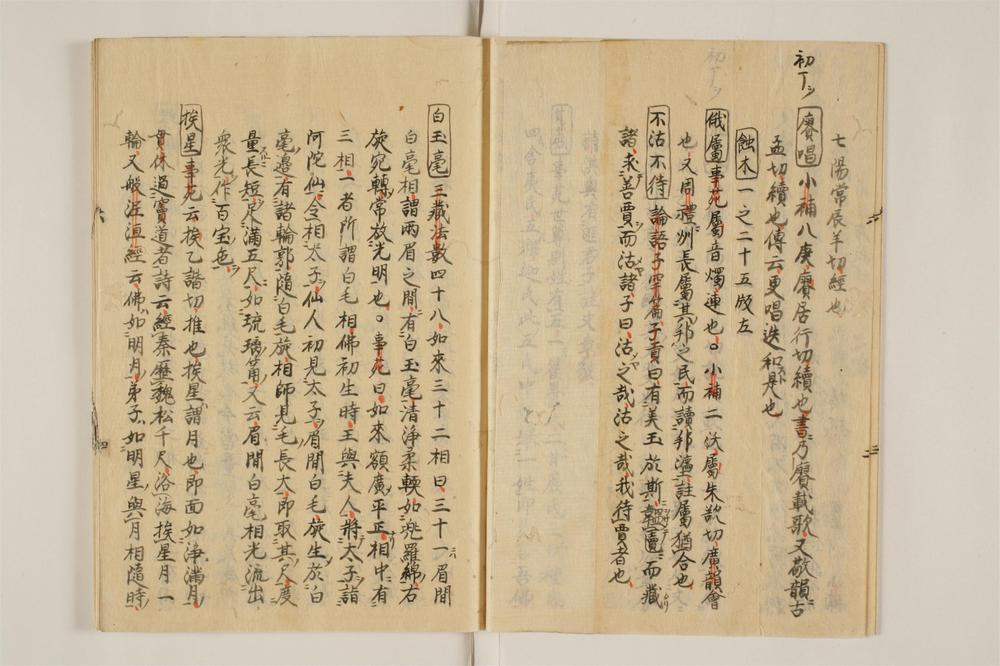 七陽常辰羊切經也
初丁ツ
賡唱 小補八庚賡居行切續也書乃賡載歌又敬韻古
孟切續也傳云更唱迭和是也
蝕木 一之二十五版左
俄屬 事苑屬音燭連也○小補二沃屬朱欲切廣韻會
也又周禮州長屬其邦之民而讀邦灋註屬猶合也
不沽不待 論語子罕篇子貢曰有美玉於斯韞匵而藏
諸求善賈而沽諸子曰沽之哉沽之哉我待賈者也
白玉毫 三藏法數四十八如來三十二相曰三十一眉間
白毫相謂兩眉之間有白玉毫清淨柔軟如兜羅綿右
旋宛轉常放光明也○事苑曰如來額廣平正相中有
三相一者所謂白毛相佛初生時王與夫人將太子詣
阿陀仙令相太子仙人初見太子眉間白毛旋生於白
毫邊有諸輪郭隨白毛旋相師見毛長大即取其尺度
量長短足滿五尺如琉璃筩又云眉間白毫相光流出
衆光作百宝色
挨星 事苑云挨乙諧切推也挨星謂月也即面如淨滿月
貫休過竇道者詩云經秦歷魏松千尺浴海挨星月一
輪又般涅洹經云佛如明月弟子如明星與月相隨時